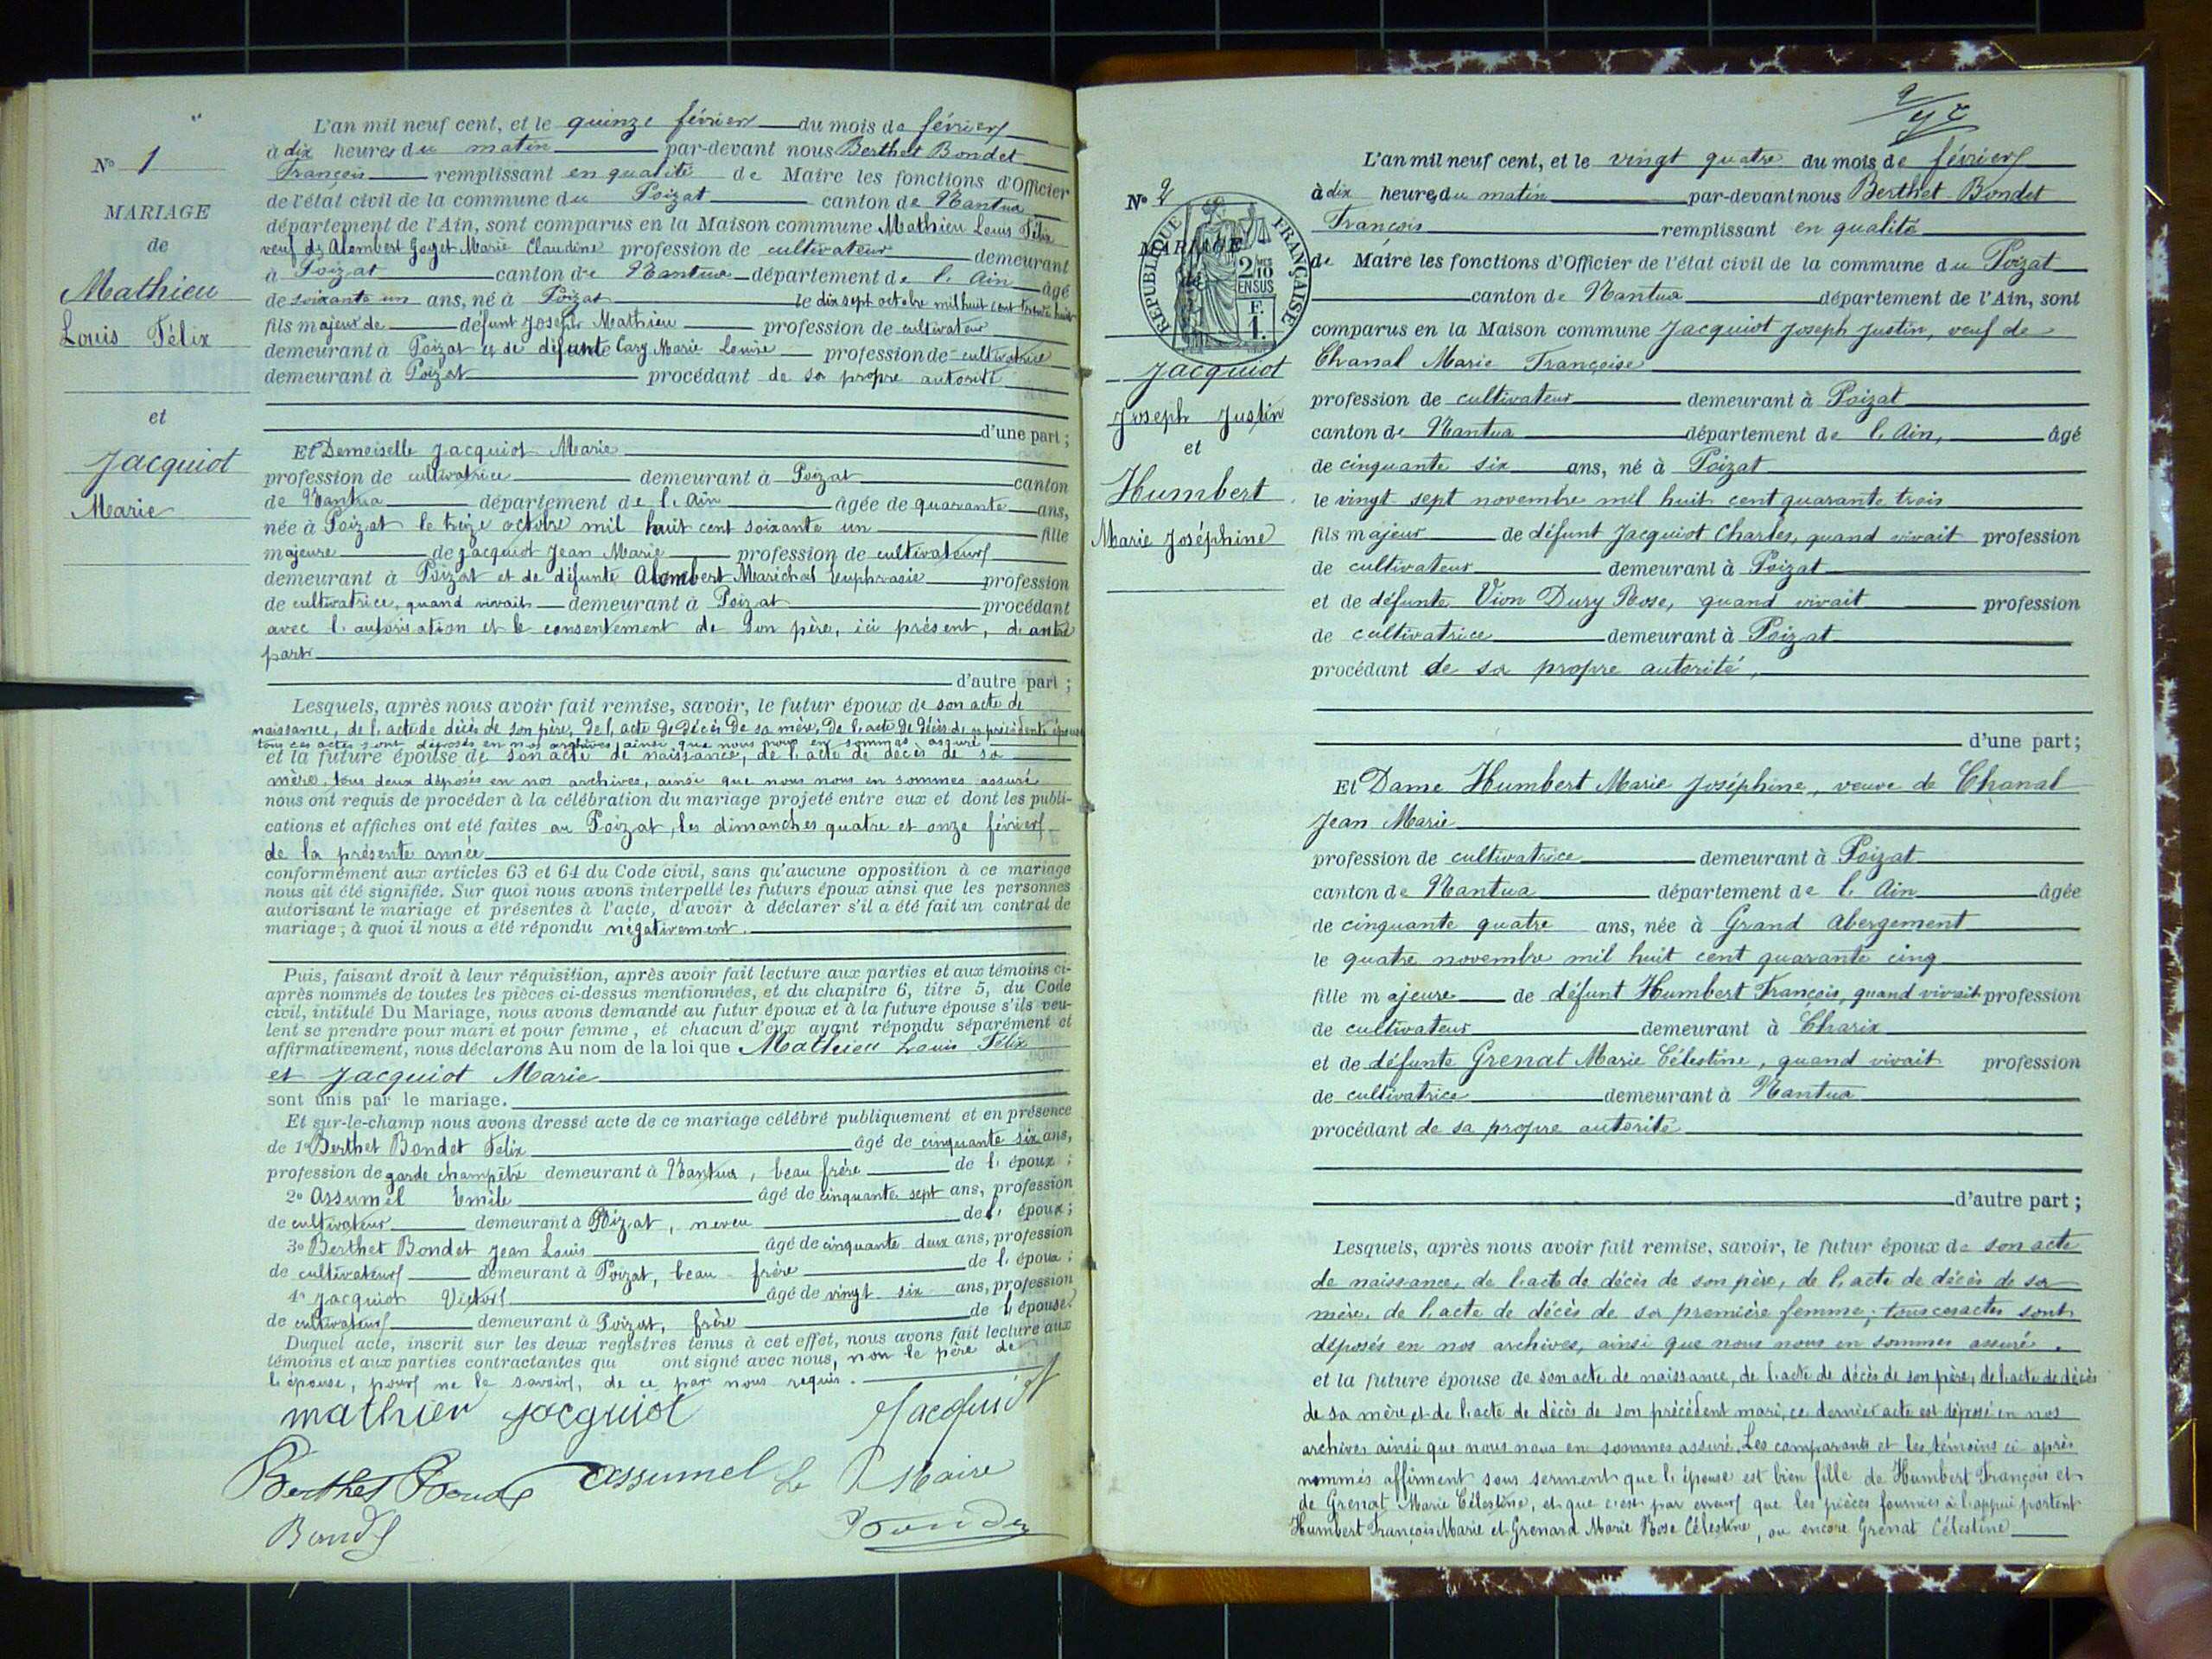 N° 1
MARIAGE
de
Mathieu
Louis Félix
et
Jacquiot
Marie
L'an mil neuf cent, et le quinze février du mois de février
à dix heures du matin par-devant nous Berthet Bondet
François remplissant en qualité de Maire les fonctions d'Officier
de l'état civil de la commune du Poizat canton de Nantua
département de l'Ain, sont comparus en la Maison commune Mathieu Louis Félix
veuf de Alombert Goget Marie Claudine profession de cultivateur demeurant
à Poizat canton de Nantua département de l'Ain âgé
de soixante un ans, né à Poizat le dix sept octobre mil huit cent trente huit
fils majeur de défunt Joseph Mathieu profession de cultivateur
demeurant à Poizat et de défunte Carry Marie Louise profession de cultivatrice
demeurant à Poizat procédant de sa propre autorité
d'une part ;
Et Demoiselle Jacquiot Marie
profession de cultivatrice demeurant à Poizat canton
de Nantua département de l'Ain âgée de quarante ans,
née à Poizat le treize octobre mil huit cent soixante un fille
majeure de Jacquiot Jean Marie profession de cultivateur
demeurant à Poizat et de défunte Alombert Maréchal Euphrasie profession
de cultivatrice, quand vivait demeurant à Poizat procédant
avec l'autorisation et le consentement de son père, ici présent, d'autre
part
d'autre part ;
Lesquels, après nous avoir fait remise, savoir, le futur époux de son acte de
naissance, de l'acte de décès de son père, de l'acte de décès de sa mère, de l'acte de décès de sa précédente épouse
tous ces actes sont déposés en nos archives, ainsi que nous nous en sommes assuré
et la future épouse de son acte de naissance, de l'acte de décès de sa
mère, tous deux déposés en nos archives, ainsi que nous nous en sommes assuré
nous ont requis de procéder à la célébration du mariage projeté entre eux et dont les publi-
cations et affiches ont été faites au Poizat, les dimanches quatre et onze février
de la présente année
conformément aux articles 63 et 64 du Code civil, sans qu'aucune opposition à ce mariage
nous ait été signifiée. Sur quoi nous avons interpellé les futurs époux ainsi que les personnes
autorisant le mariage et présentes à l'acte, d'avoir à déclarer s'il a été fait un contrat de
mariage ; à quoi il nous a été répondu négativement.
Puis, faisant droit à leur réquisition, après avoir fait lecture aux parties et aux témoins ci-
après nommés de toutes les pièces ci-dessus mentionnées, et du chapitre 6, titre 5, du Code
civil, intitulé Du Mariage, nous avons demandé au futur époux et à la future épouse s'ils veu-
lent se prendre pour mari et pour femme, et chacun d'eux ayant répondu séparément et
affirmativement, nous déclarons Au nom de la loi que Mathieu Louis Félix
et Jacquiot Marie
sont unis par le mariage.
Et sur-le-champ nous avons dressé acte de ce mariage célébré publiquement et en présence
de 1° Berthet Bondet Félix âgé de cinquante six ans,
profession de garde champêtre demeurant à Nantua, beau frère de l'époux ;
2° Assumel Emile âgé de cinquante sept ans, profession
de cultivateur demeurant à Poizat, neveu de l'époux ;
3° Berthet Bondet Jean Louis âgé de cinquante deux ans, profession
de cultivateur demeurant à Poizat, beau-frère de l'époux ;
4° Jacquiot Victor âgé de vingt six ans, profession
de cultivateur demeurant à Poizat, frère de l'épouse
Duquel acte, inscrit sur les deux registres tenus à cet effet, nous avons fait lecture aux
témoins et aux parties contractantes qui ont signé avec nous, non le père de
l'épouse, pour ne le savoir, de ce par nous requis.
mathieu jacquiot Jacquiot
Berthet Bondet assumel Le Maire
Bondet Bondet
N° 2
RÉPUBLIQUE FRANÇAISE
2/10
EN SUS
F.
1.
MARIAGE
de
Jacquiot
Joseph Justin
et
Humbert
Marie Joséphine
L'an mil neuf cent, et le vingt quatre du mois de février
à dix heures du matin par-devant nous Berthet-Bondet
François remplissant en qualité
de Maire les fonctions d'Officier de l'état civil de la commune du Poizat
canton de Nantua département de l'Ain, sont
comparus en la Maison commune Jacquiot Joseph Justin, veuf de
Chanal Marie Françoise
profession de cultivateur demeurant à Poizat
canton de Nantua département de l'Ain, âgé
de cinquante six ans, né à Poizat
le vingt sept novembre mil huit cent quarante trois
fils majeur de défunt Jacquiot Charles, quand vivait profession
de cultivateur demeurant à Poizat
et de défunte Vion Dury Rose, quand vivait profession
de cultivatrice demeurant à Poizat
procédant de sa propre autorité,
d'une part ;
Et Dame Humbert Marie Joséphine, veuve de Chanal
Jean Marie
profession de cultivatrice demeurant à Poizat
canton de Nantua département de l'Ain âgée
de cinquante quatre ans, née à Grand Abergement
le quatre novembre mil huit cent quarante cinq
fille majeure de défunt Humbert François, quand vivait profession
de cultivateur demeurant à Charix
et de défunte Grenat Marie Célestine, quand vivait profession
de cultivatrice demeurant à Nantua
procédant de sa propre autorité
d'autre part ;
Lesquels, après nous avoir fait remise, savoir, le futur époux de son acte
de naissance, de l'acte de décès de son père, de l'acte de décès de sa
mère, de l'acte de décès de sa première femme ; tous ces actes sont
déposés en nos archives, ainsi que nous nous en sommes assuré.
et la future épouse de son acte de naissance, de l'acte de décès de son père, de l'acte de décès
de sa mère, et de l'acte de décès de son précédent mari, ce dernier acte est déposé en nos
archives ainsi que nous nous en sommes assuré. Les comparants et les témoins ci après
nommés affirment sous serment que l'épouse est bien fille de Humbert François et
de Grenat Marie Célestine, et que c'est par erreur que les pièces fournies à l'appui portent
Humbert François Marie et Grenard Marie Rose Célestine, ou encore Grenat Célestine